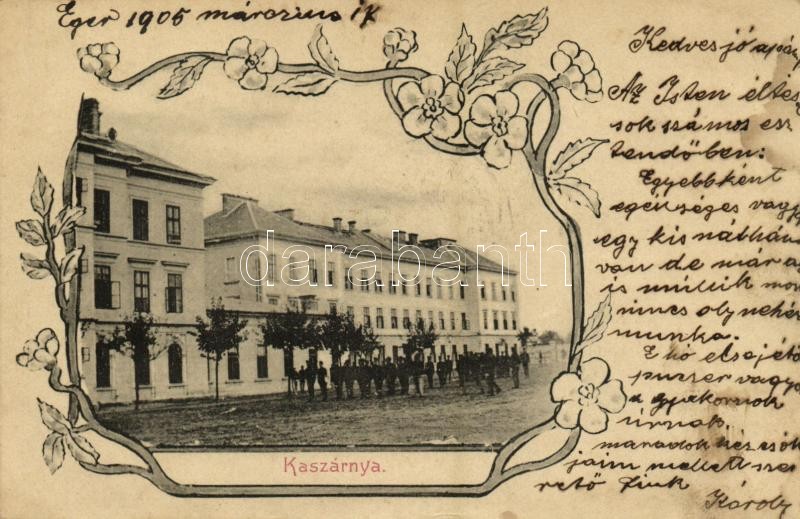 Eger 1905 március 17
Kedves jó apám
Az Isten éltes
sok számos esz
tendőben:
Egyebbként
egésséges vagyok
egy kis náthám
van de már a
is múlik most
nincs oly nehéz
munka.
E hó elsejétől
puzser vagyok
a gyakornok
úrnak,
maradok kézcsók
jaim mellett sze
rető fiuk
Károly
darabanth.com
Kaszárnya.